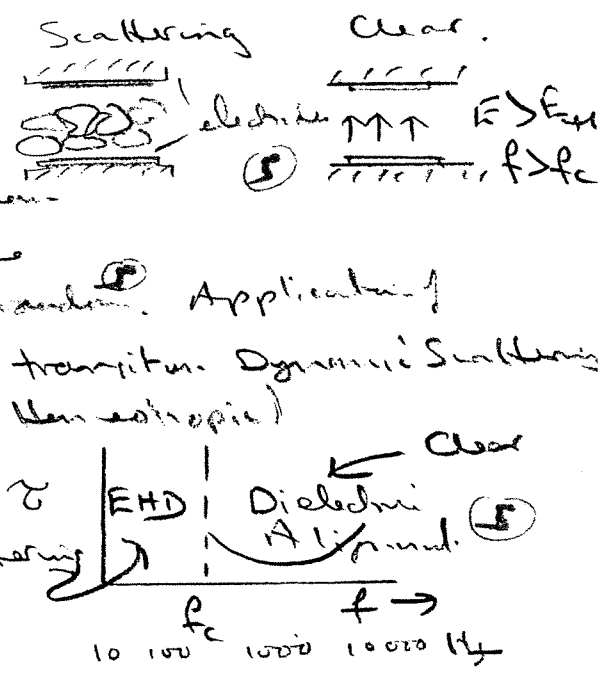 Scattering Clear.
electrodes E > E
5 f > fc
5
random. Application of
transition. Dynamic Scattering
Homeotropic)
Clear
τ EHD Dielectric 5
Alignment.
ering
fc f →
10 100 1000 10000 Hz